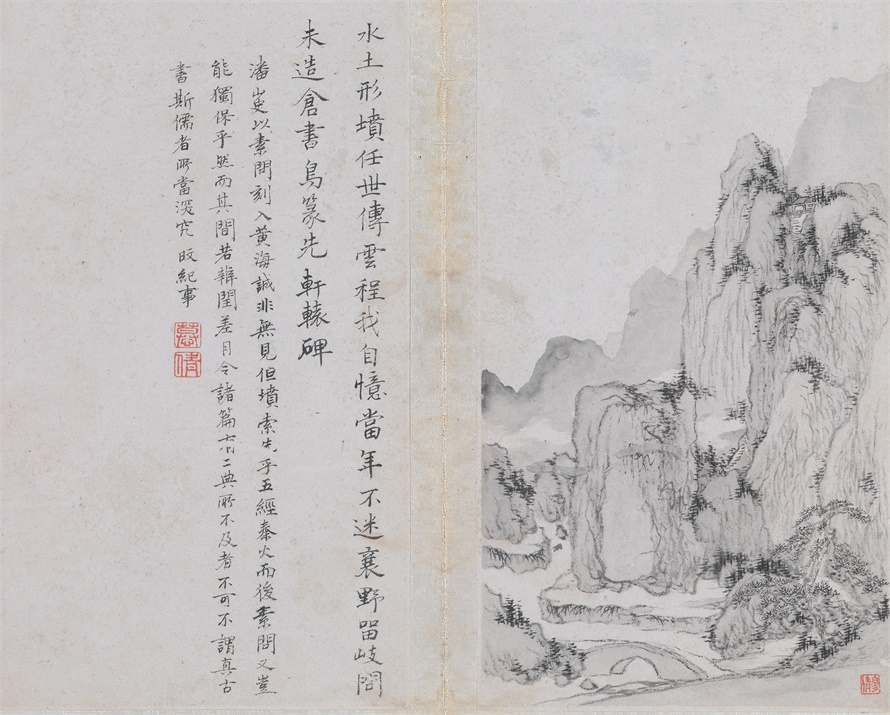 水土形墳任世傳雲程我自憶當年不迷襄野留岐問
未造倉書鳥篆先 軒轅碑
潘叟以素問刻入黃海誠非無見但墳索先乎五經秦火而後素問又豈
能獨保乎然而其間若辨閏差月令諸篇亦二典所不及者不可不謂真古
書斯儒者所當深究 旼紀事